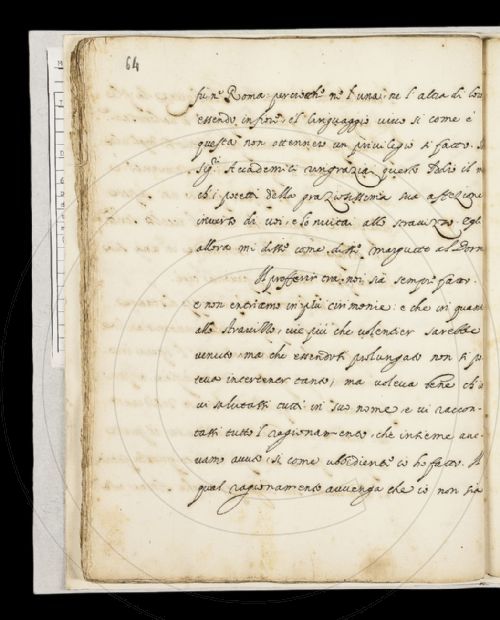 64
fu nè Roma perciochè nè l'una, nè l'altra di lor
essendo in fiore, el linguaggio vivo si come è
questa non ottennero un privilegio si fatto.
Sig.ri Accademici ringraziai questo Padre il
chi potetti della graziosissima sua affezione
inverso di voi, e lo invitai allo stravizzo. Egli
allora mi disse come disse Margutte al Dorm
Il profferir tra noi sia sempre fatto.
e non entriamo in più cirimonie: e che in quanto
allo stravizzo, vie più che volentier sarebbe
venuto, ma che essendosi prolungato non si po
teva intertener tanto, ma voleva bene ch'io
vi salutassi tutti in suo nome, e vi raccon-
tassi tutto l ragionamento, che insieme ave-
vamo avuto, si come ubbidiente io ho fatto. Il
qual ragionamento avvenga che io non sia